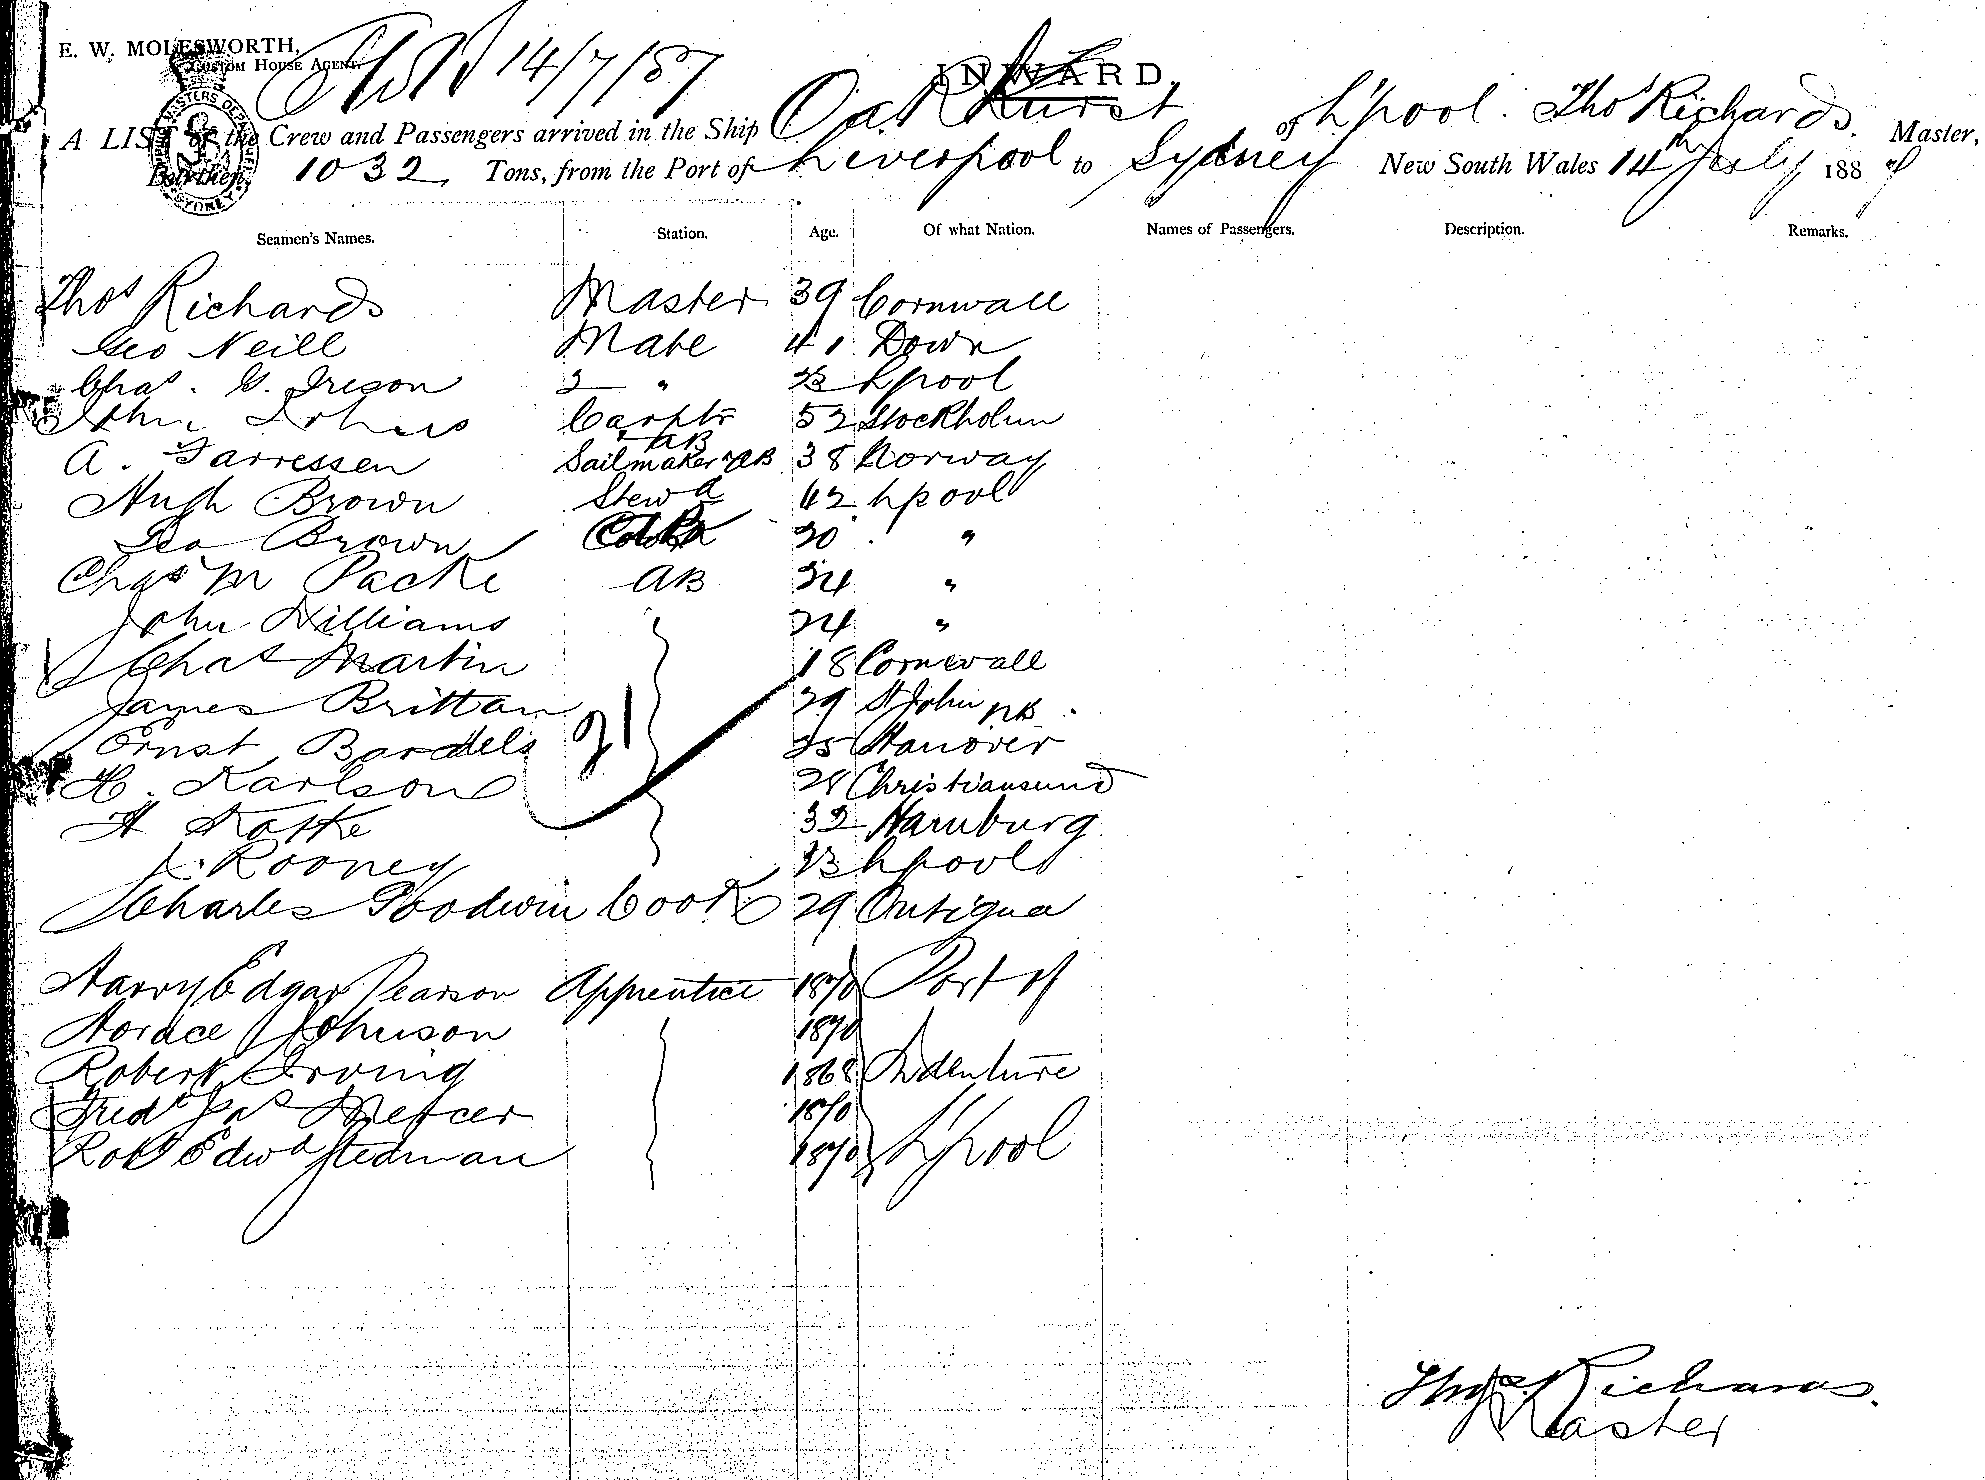 E. W. MOLESWORTH,
CUSTOM HOUSE AGENT.
14/7/87
INWARD.
A LIST of the Crew and Passengers arrived in the Ship Oakhurst of L'pool. Thos Richards. Master,
Burthen, 1032 Tons, from the Port of Liverpool to Sydney New South Wales 14th July 1887
Seamen's Names. Station. Age. Of what Nation. Names of Passengers. Description. Remarks.
Thos Richards Master 39 Cornwall
Geo Neill Mate 41 Down
Chas. G. Ireson 2 " 23 Lpool
John Johns Carptr 52 Stockholm
AB
A. Garressen Sailmaker & AB 38 Norway
Hugh Brown Stewd 42 Lpool
Geo Brown 20 "
Chas M Packe AB 24 "
John Williams 24 "
Chas Martin 18 Cornwall
James Brittan 29 St John NB.
21
Ernst Bardels 25 Hanover
H. Karlson 28 Christiansund
H 32 Hamburg
J. Rooney 23 Lpool
Charles Goodwin Cook 29 Antigua
Harry Edgar Pearson Apprentice 1870 Port of
Horace Johnson 1870
Robert Irving 1868 Indenture
Fredk Jas Mercer 1870
Robt Edwd Stedman 1870 L'pool
Thos Richards.
Master